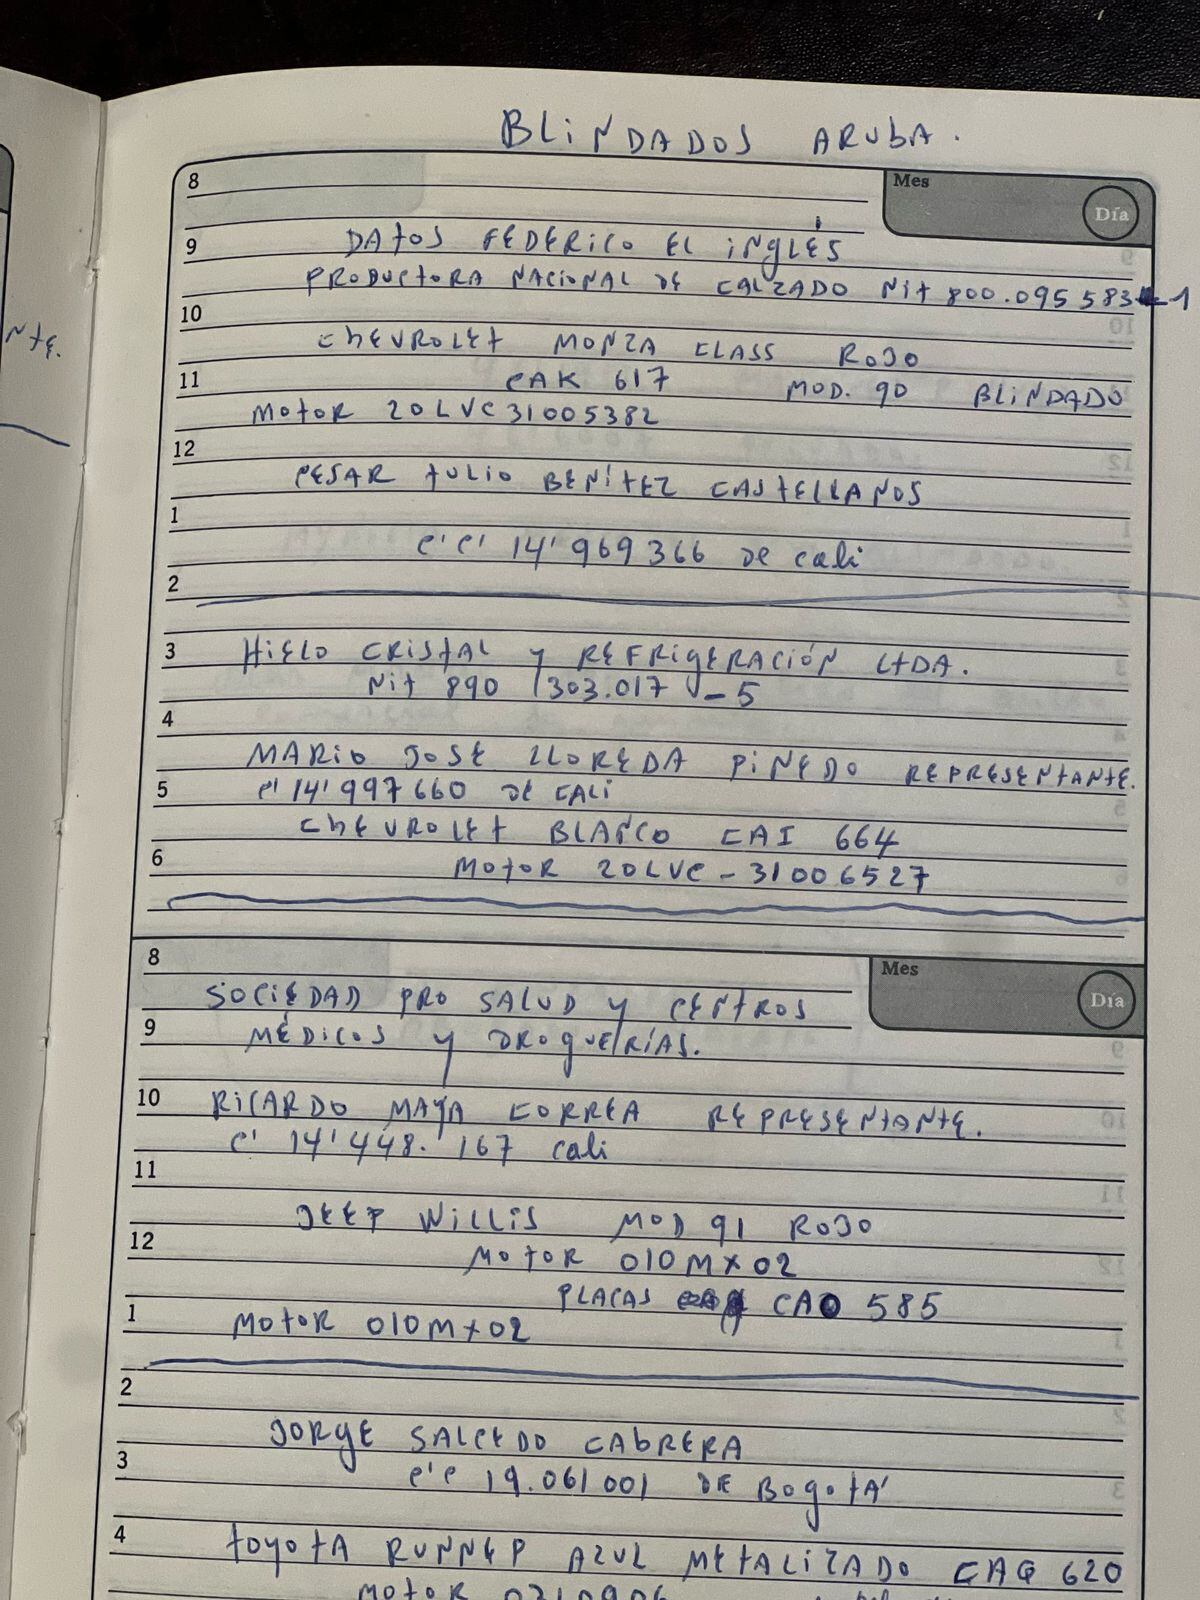 BLINDADOS ARUBA.
Mes
Día
8
9 DATOS FEDERICO EL INGLÉS
PRODUCTORA NACIONAL DE CALZADO Nit 800.095583-1
10
CHEVROLET MONZA CLASS ROJO
11 CAK 617 MOD. 90 BLINDADO
MOTOR 20LVC31005382
12
CESAR TULIO BENÍTEZ CASTELLANOS
1
C'C' 14'969366 DE cali
2
3 HIELO CRISTAL y REFRIGERACIÓN LTDA.
Nit 890 303.017 - 5
4
MARIO JOSE LLOREDA PIÑEDO REPRESENTANTE.
5 C' 14'997660 DE CALI
CHEVROLET BLANCO CAI 664
6 MOTOR 20LVC - 31006527
NTE.
Mes
Día
8
SOCIEDAD PRO SALUD y CENTROS
9 MÉDICOS y DROGUERÍAS.
10 RICARDO MAYA CORREA REPRESENTANTE.
C' 14'448.167 cali
11
JEEP WILLIS MOD 91 ROJO
12 MOTOR 010MX02
PLACAS CAO 585
1 MOTOR 010MX02
2
JORGE SALCEDO CABRERA
3 C'C 19.061001 DE BOGOTÁ
4 TOYOTA RUNNER AZUL METALIZADO CAQ 620
MOTOR